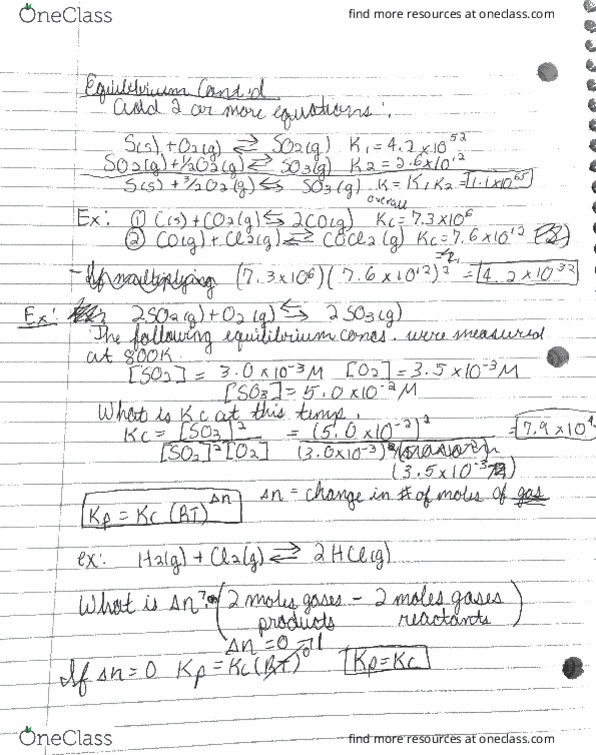 OneClass
find more resources at oneclass.com
Equilibrium Cont'd
Add 2 or more equations:
S(s) + O2(g) ⇌ SO2(g) K1 = 4.2 x 10^52
SO2(g) + 1/2 O2(g) ⇌ SO3(g) K2 = 2.6 x 10^12
S(s) + 3/2 O2(g) ⇆ SO3(g) K = K1K2 = 1.1 x 10^65
overall
Ex: ① C(s) + CO2(g) ⇆ 2CO(g) Kc = 7.3 x 10^6
② CO(g) + Cl2(g) ⇌ COCl2(g) Kc = 7.6 x 10^12
- If multiplying (7.3 x 10^6)(7.6 x 10^12)^2 = 4.2 x 10^32
Ex: 2SO2(g) + O2(g) ⇆ 2SO3(g)
The following equilibrium concs. were measured
at 800K
[SO2] = 3.0 x 10^-3 M [O2] = 3.5 x 10^-3 M
[SO3] = 5.0 x 10^-2 M
What is Kc at this temp.
Kc = [SO3]^2 / [SO2]^2[O2] = (5.0 x 10^-2)^2 / (3.0 x 10^-3)^2 (3.5 x 10^-3) = 7.9 x 10^4
Kp = Kc (RT)^Δn Δn = change in # of moles of gas
ex: H2(g) + Cl2(g) ⇌ 2HCl(g)
What is Δn? (2 moles gases - 2 moles gases)
products reactants
Δn = 0
If Δn = 0 Kp = Kc(RT)^0 → 1 Kp = Kc
OneClass
find more resources at oneclass.com